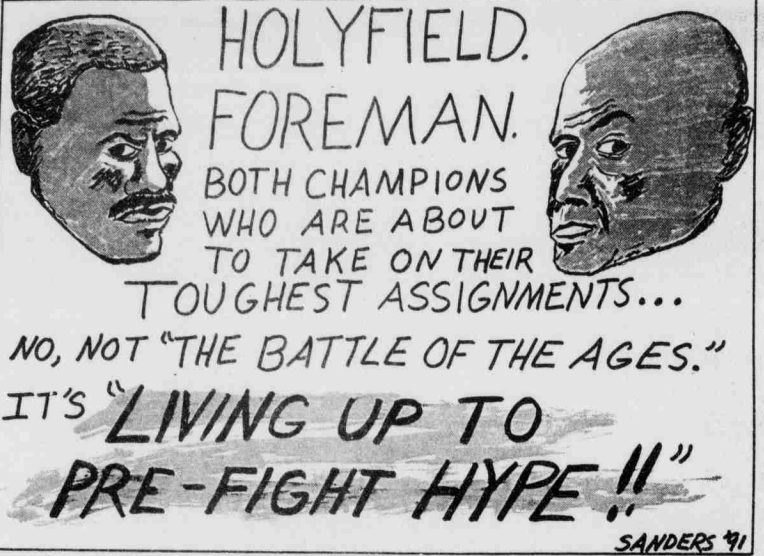 HOLYFIELD.
FOREMAN.
BOTH CHAMPIONS
WHO ARE ABOUT
TO TAKE ON THEIR
TOUGHEST ASSIGNMENTS...
NO, NOT "THE BATTLE OF THE AGES."
IT'S "LIVING UP TO
PRE-FIGHT HYPE!!"
SANDERS '91